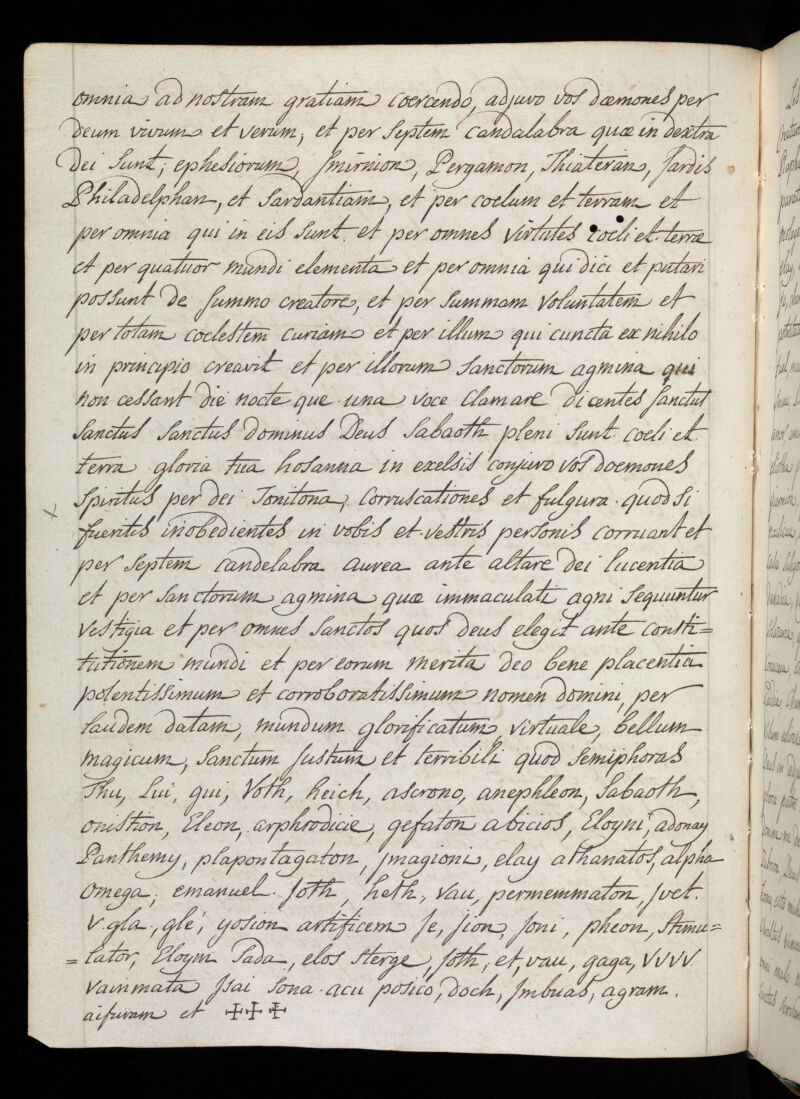 omnia ad nostram gratiam coercendo, adjuvo vos dœmones per
Deum vivum et verum, et per septem candalabra quœ in dextra
dei sunt; ephesiorum, Smirnion, Pergamon, Thiateran, Sardis
Philadelphan, et Sardantiam, et per coelum et terram et
per omnia qui in eis sunt et per omnes virtutes coeli et terrœ
et per quatuor mundi elementa et per omnia qui dici et putari
possunt de summo creatore, et per summam voluntatem et
per totam coelestem curiam et per illum qui cuncta ex nihilo
in principio creavit et per illorum sanctorum agmina qui
non cessant die nocte que una voce clamare dicentes Sanctus
Sanctus Sanctus Dominus Deus Sabaoth pleni sunt coeli et
terra gloria tua hosanna in exelsis conjuro vos doemones
Spiritus per dei Tonitona, Corruscationes et fulgura quod si
fueritis inobedientes in vobis et vestris personis corruant et
per septem candelabra aurea ante altare dei lucentia
et per sanctorum agmina quœ immaculati agni sequuntur
vestigia et per omnes Sanctos quos deus elegit ante consti=
tutionem mundi et per eorum merita deo bene placentia
potentissimum et corroboratissimum nomen domini, per
laudem datam, mundum glorificatum, virtuale, bellum
magicum, Sanctum Justum et terribili quod Semiphoras
Thu, Lui, qui, Voth, heich, ascrono, anephleon, Sabaoth,
onistion, Eleon, arphrodicie, gefaton abicios, Eloyni, adonay
Panthemy, plapontagaton, Jmagioni, elay athanatos, alpha
omega, emanuel. Joth, heth, vau, permemmaton, Jvet.
V. gla, glé, yosion artificem Je, Jion, Joni, pheon, Stimu=
=lator, Eloym Tada, elos sterge, Joth, et, vau, gaga, VVVV
vainmata Jsai Sona acu posico, doch, Jmbuas, agram.
aifuram et ✠✠✠